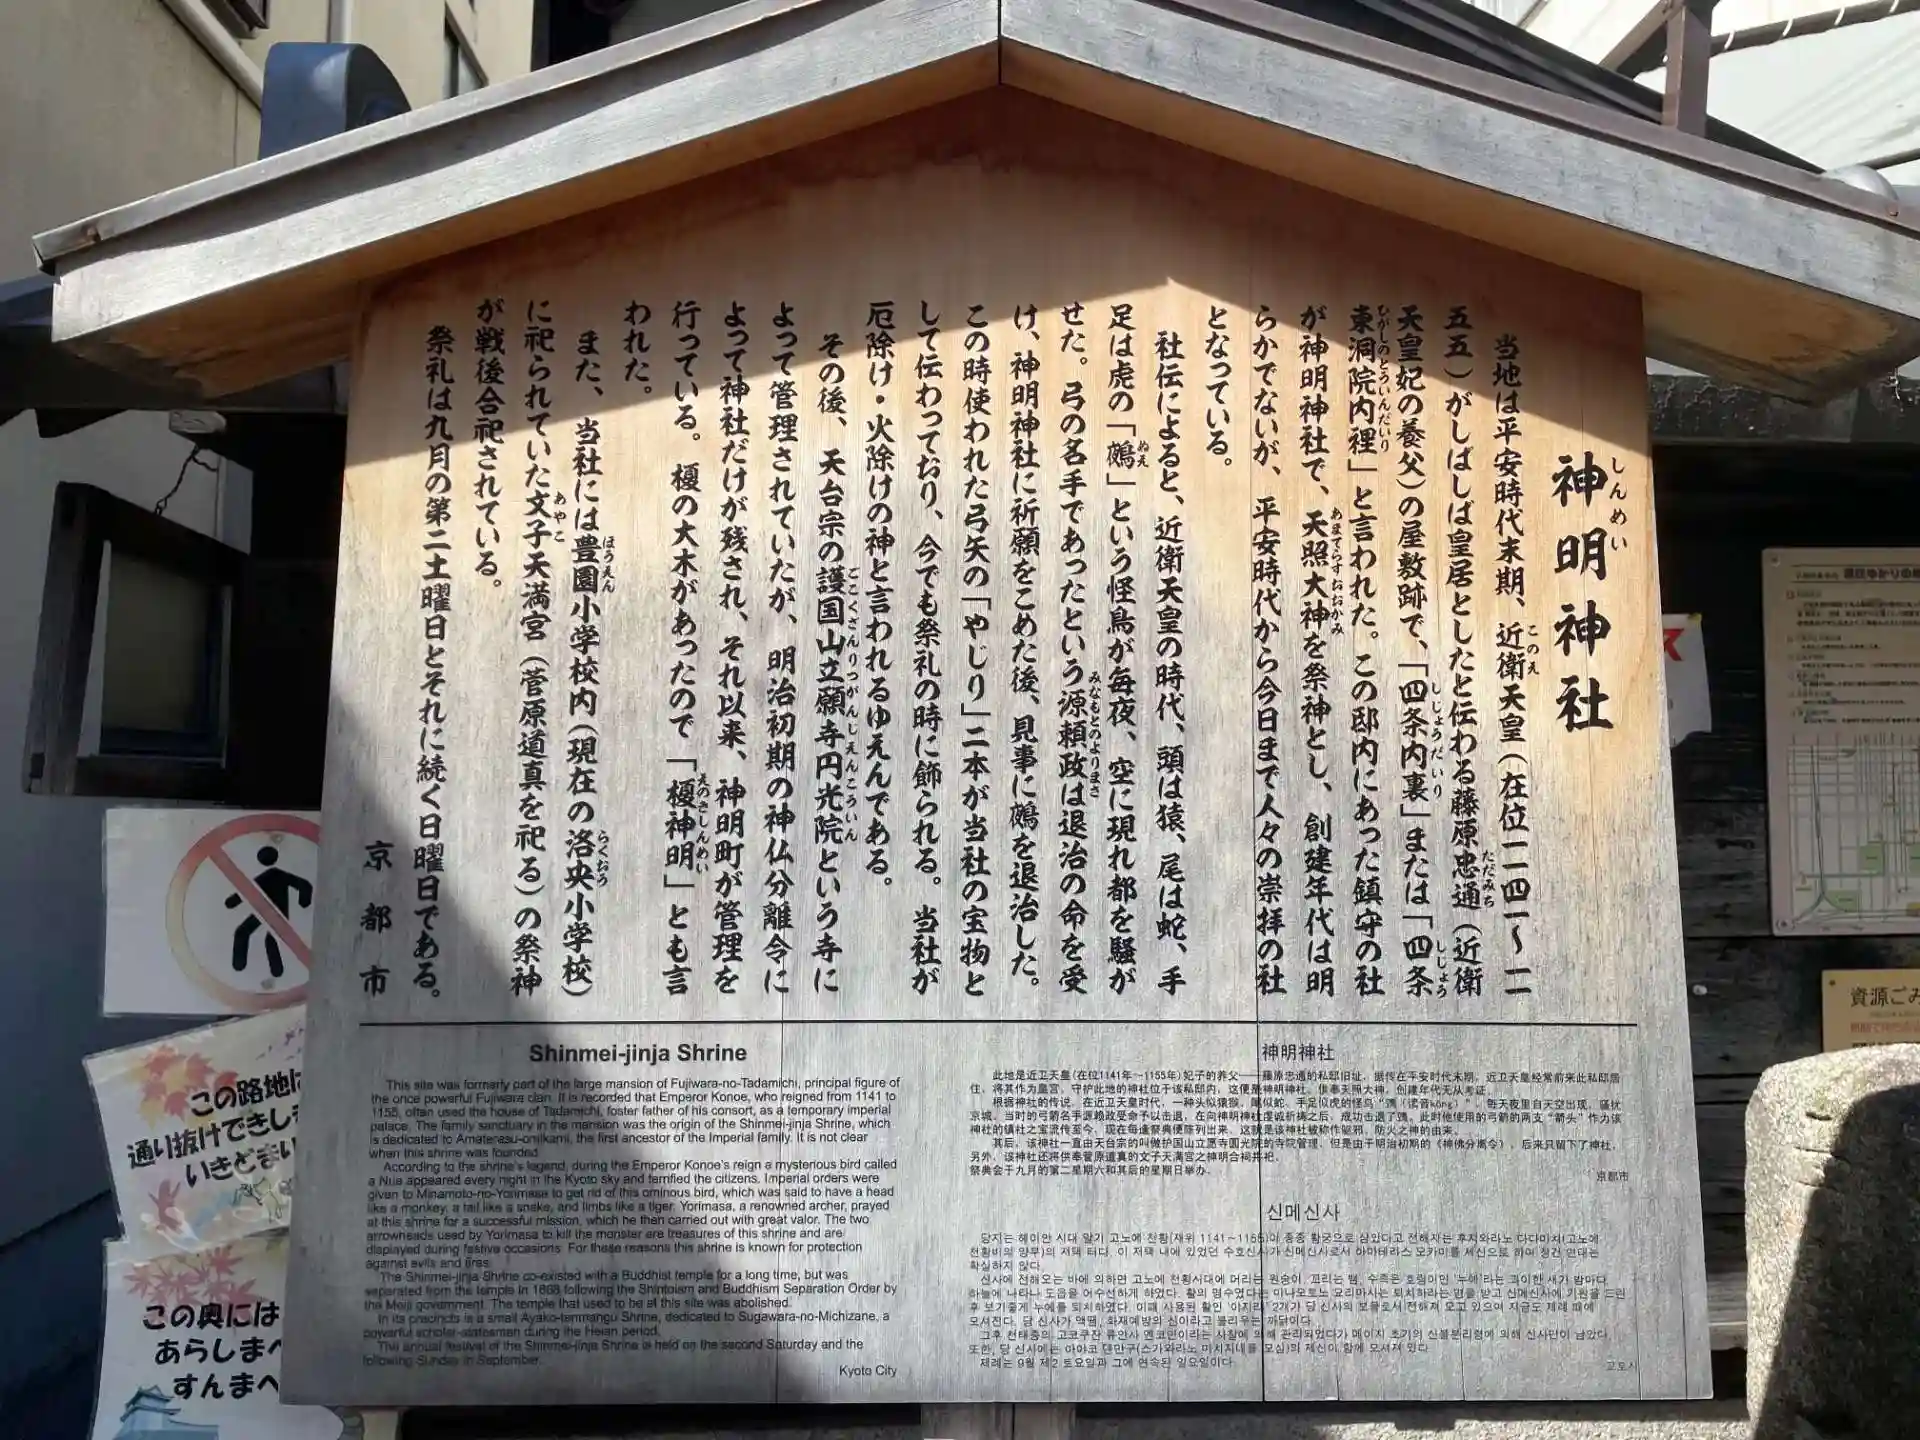 神明神社
しんめい
当地は平安時代末期、近衛天皇(在位一一四一〜一一
五五)がしばしば皇居としたと伝わる藤原忠通(近衛
天皇妃の養父)の屋敷跡で、「四条内裏」または「四条
東洞院内裡」と言われた。この邸内にあった鎮守の社
が神明神社で、天照大神を祭神とし、創建年代は明
らかでないが、平安時代から今日まで人々の崇拝の社
となっている。
社伝によると、近衛天皇の時代、頭は猿、尾は蛇、手
足は虎の「鵺」という怪鳥が毎夜、空に現れ都を騒が
せた。弓の名手であったという源頼政は退治の命を受
け、神明神社に祈願をこめた後、見事に鵺を退治した。
この時使われた弓矢の「やじり」二本が当社の宝物と
して伝わっており、今でも祭礼の時に飾られる。当社が
厄除け・火除けの神と言われるゆえんである。
その後、天台宗の護国山立願寺円光院という寺に
よって管理されていたが、明治初期の神仏分離令に
よって神社だけが残され、それ以来、神明町が管理を
行っている。榎の大木があったので「榎神明」とも言
われた。
また、当社には豊園小学校内(現在の洛央小学校)
に祀られていた文子天満宮(菅原道真を祀る)の祭神
が戦後合祀されている。
祭礼は九月の第二土曜日とそれに続く日曜日である。
京都市
Shinmei-jinja Shrine
This site was formerly part of the large mansion of Fujiwara-no-Tadamichi, principal figure of
the once powerful Fujiwara clan. It is recorded that Emperor Konoe, who reigned from 1141 to
1155, often used the house of Tadamichi, foster father of his consort, as a temporary imperial
palace. The family sanctuary in the mansion was the origin of the Shinmei-jinja Shrine, which
is dedicated to Amaterasu-omikami, the first ancestor of the Imperial family. It is not clear
when this shrine was founded.
According to the shrine's legend, during the Emperor Konoe's reign a mysterious bird called
a Nue appeared every night in the Kyoto sky and terrified the citizens. Imperial orders were
given to Minamoto-no-Yorimasa to get rid of this ominous bird, which was said to have a head
like a monkey, a tail like a snake, and limbs like a tiger. Yorimasa, a renowned archer, prayed
at this shrine for a successful mission, which he then carried out with great valor. The two
arrowheads used by Yorimasa to kill the monster are treasures of this shrine and are
displayed during festive occasions. For these reasons this shrine is known for protection
against evils and fires.
The Shinmei-jinja Shrine co-existed with a Buddhist temple for a long time, but was
separated from the temple in 1868 following the Shintoism and Buddhism Separation Order by
the Meiji government. The temple that used to be at this site was abolished.
In its precincts is a small Ayako-tenmangu Shrine, dedicated to Sugawara-no-Michizane, a
powerful scholar-statesman during the Heian period.
The annual festival of the Shinmei-jinja Shrine is held on the second Saturday and the
following Sunday in September.
Kyoto City
神明神社
此地是近卫天皇(在位1141年~1155年)妃子的养父——藤原忠通的私邸旧址，据传在平安时代末期，近卫天皇经常前来此私邸居
住，将其作为皇宫，守护此地的神社位于该私邸内，这便是神明神社，供奉天照大神，创建年代无从考证。
其后，该神社一直由天台宗的叫做护国山立愿寺圆光院的寺院管理，但是由于明治初期的《神佛分离令》，后来只留下了神社，
另外，该神社还将供奉菅原道真的文子天满宫之神明合祠并祀。
祭典会于九月的第二星期六和其后的星期日举办。
京都市
신메신사
제례는 9월 제2 토요일과 그에 연속된 일요일이다.
교토시
この路地は
通り抜けできし
いきどまり
この奥には
あらしま
すんまへ
資源ごみ